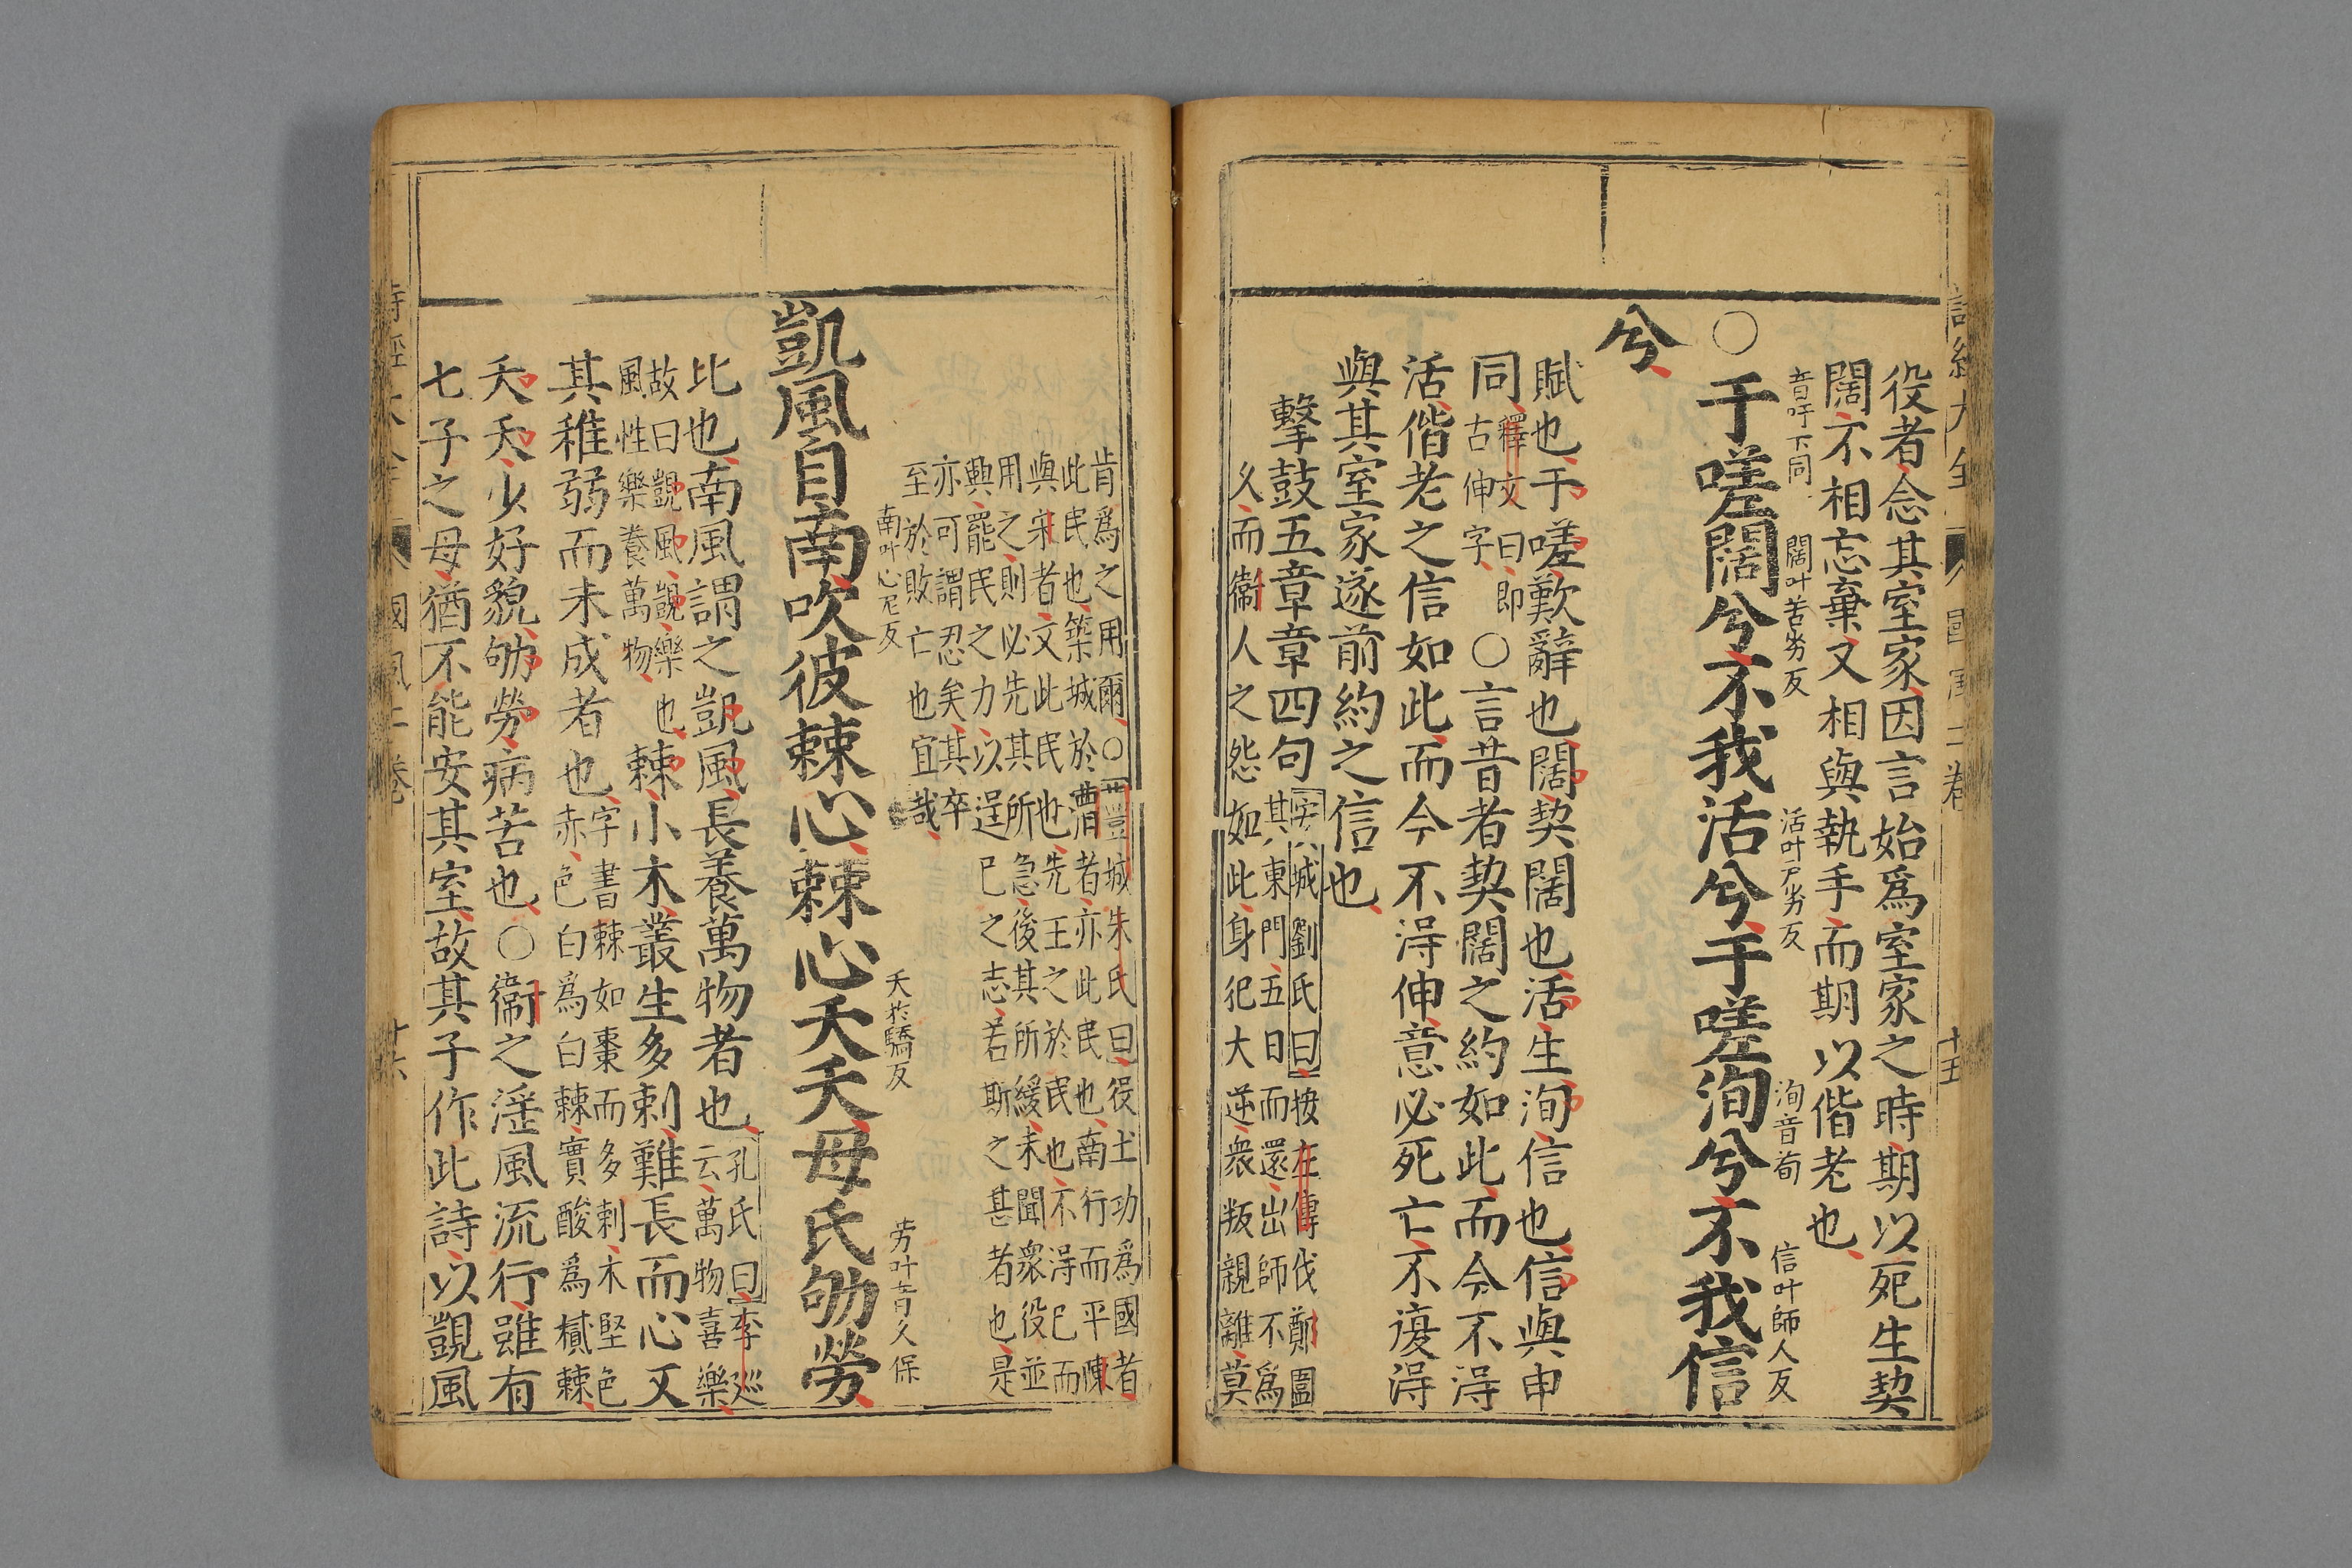 役者念其室家因言始爲室家之時期以死生契
闊不相忘棄又相與執手而期以偕老也
音吁下同 闊叶苦劣反 活叶戶劣反 洵音荀 信叶師人反
○于嗟闊兮不我活兮于嗟洵兮不我信
兮
賦也于嗟歎辭也闊契闊也活生洵信也信與申
同釋文曰即古伸字○言昔者契闊之約如此而今不得
活偕老之信如此而今不得伸意必死亡不復得
與其室家遂前約之信也
擊鼓五章章四句安城劉氏曰按左傳伐鄭圍
其東門五日而還出師不爲
久而衞人之怨如此身犯大逆衆叛親離莫
肯爲之用爾○豐城朱氏曰役土功爲國者
此民也築城於漕者亦此民也南行而平陳
與宋者文此民也先王之於民也不得已而
用之則必先其所急後其所緩未聞衆役並
興罷民之力以逞已之志若斯之甚者也是
亦可謂忍矣其卒
至於敗亡也宜哉
南叶心尼反 夭於驕反 勞叶音久保
凱風自南吹彼棘心棘心夭夭母氏劬勞
比也南風謂之凱風長養萬物者也孔氏曰李廵
云萬物喜樂
故曰凱風凱樂也
風性樂養萬物棘小木叢生多刺難長而心又
其稚弱而未成者也字書棘如棗而多刺木堅色
赤色白爲白棘實酸爲樲棘
夭夭少好貌劬勞病苦也○衞之淫風流行雖有
七子之母猶不能安其室故其子作此詩以凱風